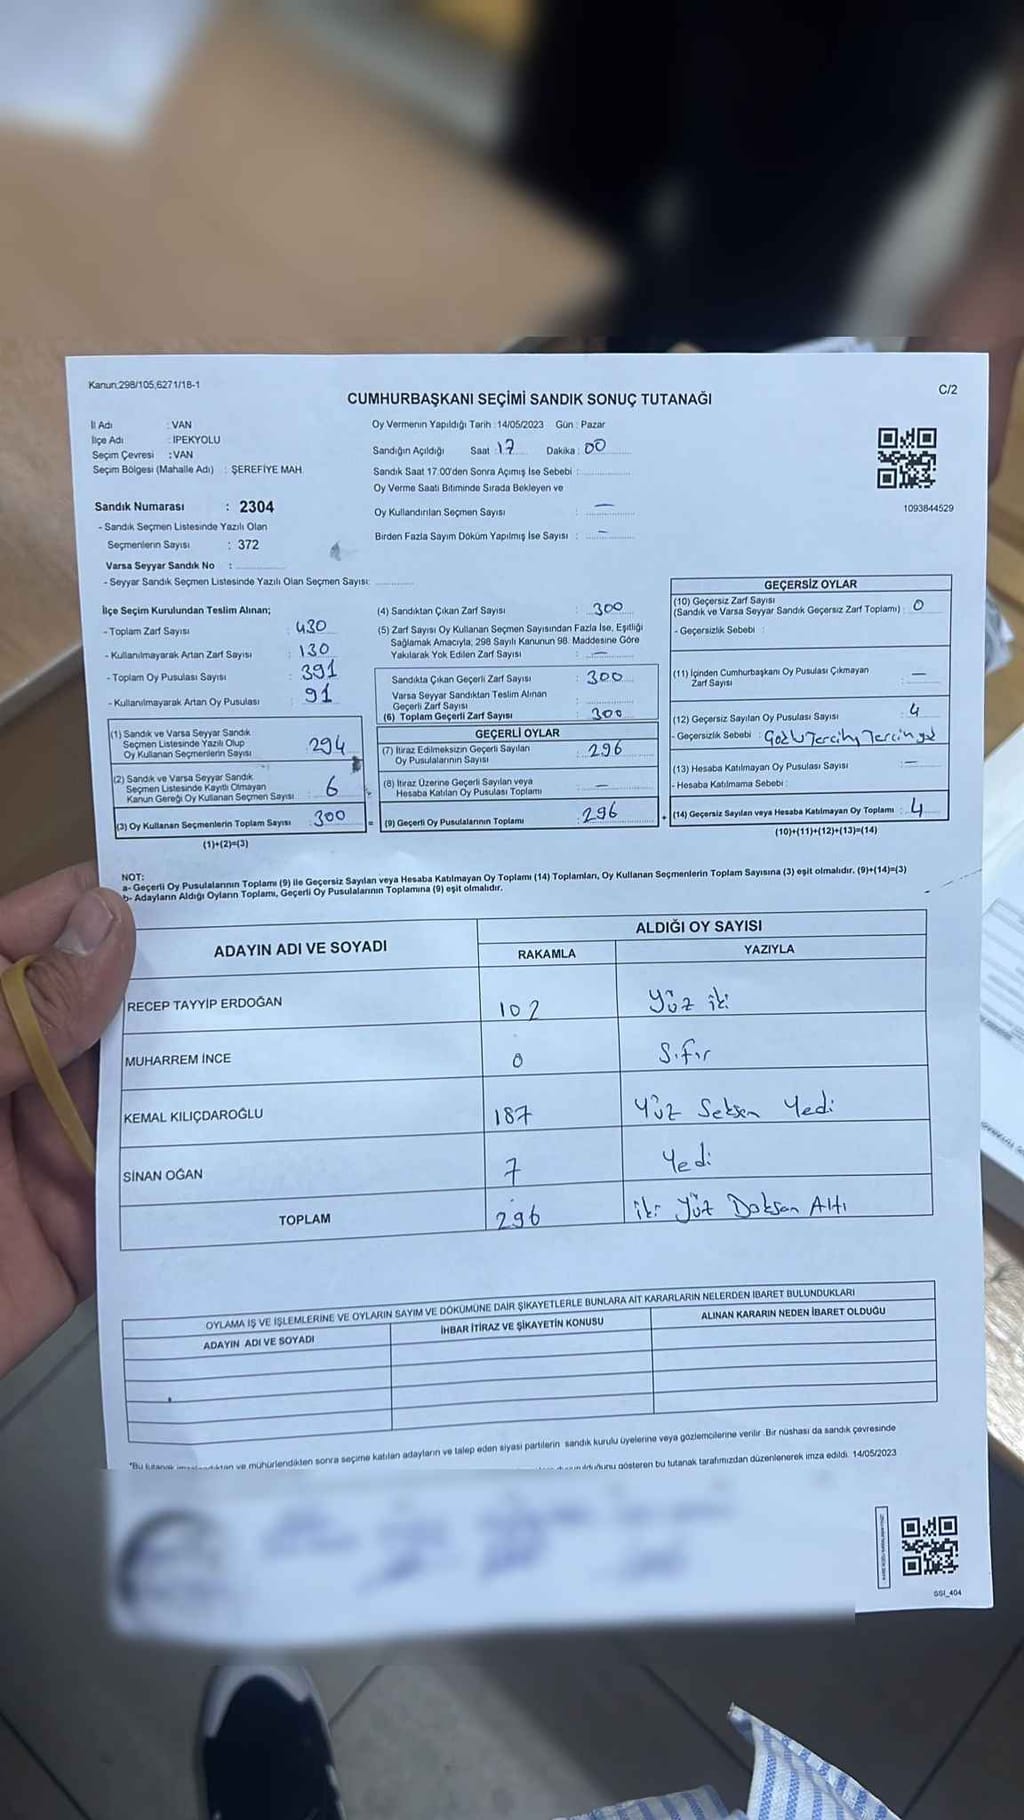 Kanun,298/105,6271/18-1
C/2
CUMHURBAŞKANI SEÇİMİ SANDIK SONUÇ TUTANAĞI
İl Adı : VAN
İlçe Adı : İPEKYOLU
Seçim Çevresi : VAN
Seçim Bölgesi (Mahalle Adı) : ŞEREFİYE MAH.
Sandık Numarası : 2304
- Sandık Seçmen Listesinde Yazılı Olan
Seçmenlerin Sayısı : 372
Varsa Seyyar Sandık No :
- Seyyar Sandık Seçmen Listesinde Yazılı Olan Seçmen Sayısı:
Oy Vermenin Yapıldığı Tarih :14/05/2023 Gün : Pazar
Sandığın Açıldığı Saat : 17 Dakika : 00
Sandık Saat 17:00'den Sonra Açımış İse Sebebi :
Oy Verme Saati Bitiminde Sırada Bekleyen ve
Oy Kullandırılan Seçmen Sayısı : —
Birden Fazla Sayım Döküm Yapılmış İse Sayısı : —
1093844529
İlçe Seçim Kurulundan Teslim Alınan;
- Toplam Zarf Sayısı : 430
- Kullanılmayarak Artan Zarf Sayısı : 130
- Toplam Oy Pusulası Sayısı : 391
- Kullanılmayarak Artan Oy Pusulası : 91
(1) Sandık ve Varsa Seyyar Sandık
Seçmen Listesinde Yazılı Olup
Oy Kullanan Seçmenlerin Sayısı : 294
(2) Sandık ve Varsa Seyyar Sandık
Seçmen Listesinde Kayıtlı Olmayan
Kanun Gereği Oy Kullanan Seçmen Sayısı : 6
(3) Oy Kullanan Seçmenlerin Toplam Sayısı : 300
(1)+(2)=(3)
(4) Sandıktan Çıkan Zarf Sayısı : 300
(5) Zarf Sayısı Oy Kullanan Seçmen Sayısından Fazla İse, Eşitliği
Sağlamak Amacıyla; 298 Sayılı Kanunun 98. Maddesine Göre
Yakılarak Yok Edilen Zarf Sayısı : —
Sandıkta Çıkan Geçerli Zarf Sayısı : 300
Varsa Seyyar Sandıktan Teslim Alınan
Geçerli Zarf Sayısı :
(6) Toplam Geçerli Zarf Sayısı : 300
GEÇERLİ OYLAR
(7) İtiraz Edilmeksizin Geçerli Sayılan
Oy Pusulalarının Sayısı : 296
(8) İtiraz Üzerine Geçerli Sayılan veya
Hesaba Katılan Oy Pusulası Toplamı : —
= (9) Geçerli Oy Pusulalarının Toplamı : 296
GEÇERSİZ OYLAR
(10) Geçersiz Zarf Sayısı
(Sandık ve Varsa Seyyar Sandık Geçersiz Zarf Toplamı) : 0
- Geçersizlik Sebebi :
(11) İçinden Cumhurbaşkanı Oy Pusulası Çıkmayan
Zarf Sayısı : —
(12) Geçersiz Sayılan Oy Pusulası Sayısı : 4
- Geçersizlik Sebebi :
(13) Hesaba Katılmayan Oy Pusulası Sayısı : —
- Hesaba Katılmama Sebebi :
+ (14) Geçersiz Sayılan veya Hesaba Katılmayan Oy Toplamı : 4
(10)+(11)+(12)+(13)=(14)
NOT:
a- Geçerli Oy Pusulalarının Toplamı (9) ile Geçersiz Sayılan veya Hesaba Katılmayan Oy Toplamı (14) Toplamları, Oy Kullanan Seçmenlerin Toplam Sayısına (3) eşit olmalıdır. (9)+(14)=(3)
b- Adayların Aldığı Oyların Toplamı, Geçerli Oy Pusulalarının Toplamına (9) eşit olmalıdır.
ADAYIN ADI VE SOYADI
ALDIĞI OY SAYISI
RAKAMLA YAZIYLA
RECEP TAYYİP ERDOĞAN 102 Yüz iki
MUHARREM İNCE 0 Sıfır
KEMAL KILIÇDAROĞLU 187 Yüz Seksen Yedi
SİNAN OĞAN 7 Yedi
TOPLAM 296 iki Yüz Doksan Altı
OYLAMA İŞ VE İŞLEMLERİNE VE OYLARIN SAYIM VE DÖKÜMÜNE DAİR ŞİKAYETLERLE BUNLARA AİT KARARLARIN NELERDEN İBARET BULUNDUKLARI
ADAYIN ADI VE SOYADI İHBAR İTİRAZ VE ŞİKAYETİN KONUSU ALINAN KARARIN NEDEN İBARET OLDUĞU
*Bu tutanak ve mühürlendikten sonra seçime katılan adayların ve talep eden siyasi partilerin sandık kurulu üyelerine veya gözlemcilerine verilir. Bir nüshası da sandık çevresinde
gösteren bu tutanak tarafımızdan düzenlenerek imza edildi. 14/05/2023
SSİ_404